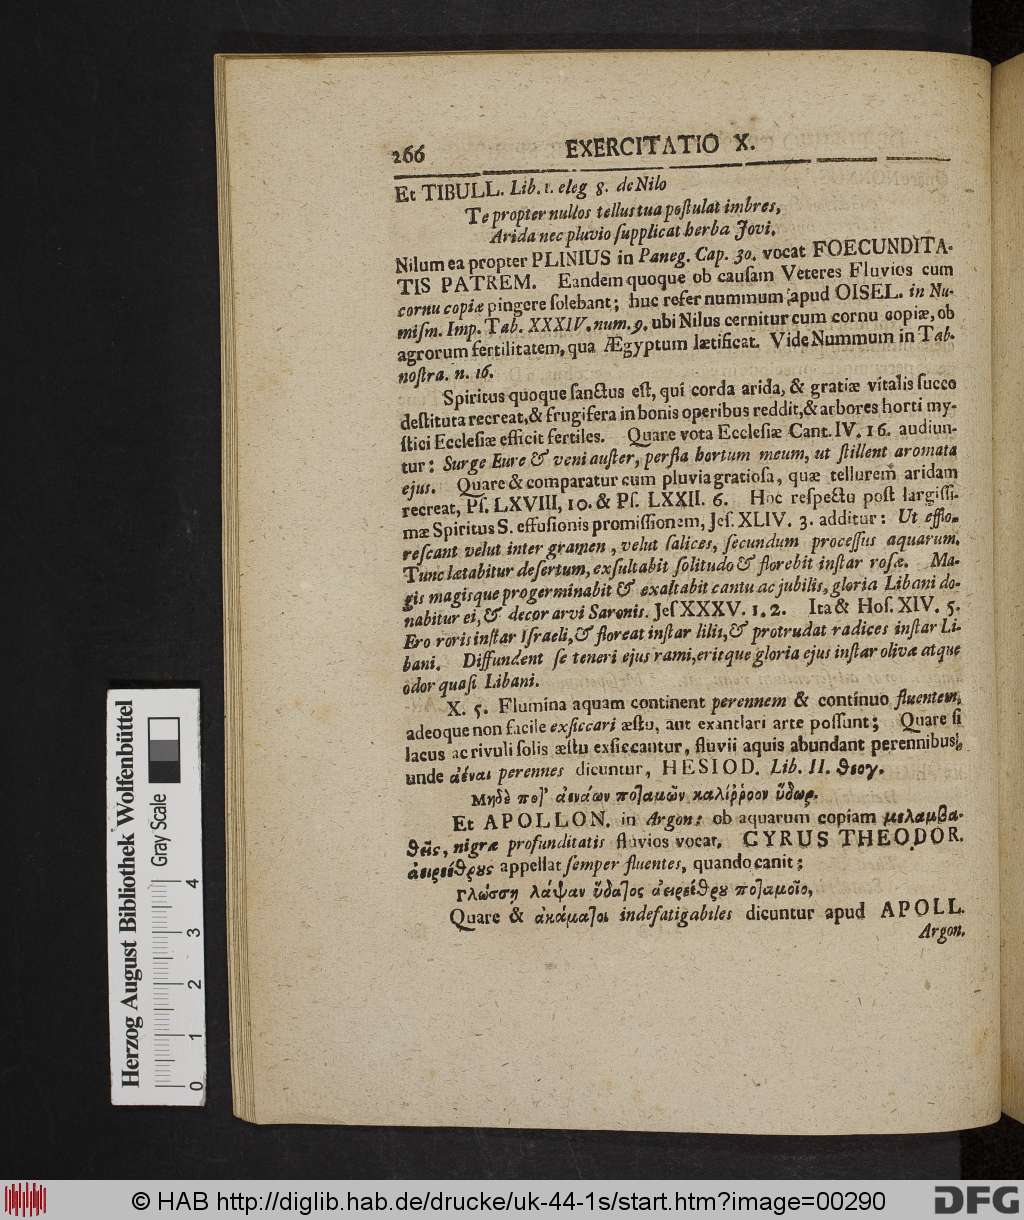 266 EXERCITATIO X.
Et TIBULL. Lib. 1. eleg 8. de Nilo
Te propter nullos tellus tua poſtulat imbres,
Arida nec pluvio ſupplicat herba Jovi.
Nilum ea propter PLINIUS in Paneg. Cap. 30. vocat FOECUNDITA-
TIS PATREM. Eandem quoque ob cauſam Veteres Fluvios cum
cornu copiæ pingere ſolebant; huc refer nummum apud OISEL. in Nu-
miſm. Imp. Tab. XXXIV. num. 9. ubi Nilus cernitur cum cornu copiæ, ob
agrorum fertilitatem, qua Ægyptum lætificat. Vide Nummum in Tab.
noſtra. n. 16.
Spiritus quoque ſanctus eſt, qui corda arida, & gratiæ vitalis ſucco
deſtituta recreat, & frugifera in bonis operibus reddit, & arbores horti my-
ſtici Eccleſiæ efficit fertiles. Quare vota Eccleſiæ Cant. IV. 16. audiun-
tur: Surge Eure & veni auſter, perfla hortum meum, ut ſtillent aromata
ejus. Quare & comparatur cum pluvia gratioſa, quæ tellurem aridam
recreat, Pſ. LXVIII, 10. & Pſ. LXXII. 6. Hoc reſpectu poſt largiſſi-
mæ Spiritus S. effuſionis promiſſionem, Jeſ. XLIV. 3. additur: Ut efflo-
reſcant velut inter gramen, velut ſalices, ſecundum proceſſus aquarum.
Tunc lætabitur deſertum, exſultabit ſolitudo & florebit inſtar roſæ. Ma-
gis magisque progerminabit & exaltabit cantu ac jubilis, gloria Libani do-
nabitur ei, & decor arvi Saronis. Jeſ XXXV. 1. 2. Ita & Hoſ. XIV. 5.
Ero roris inſtar Iſraeli, & floreat inſtar lilii, & protrudat radices inſtar Li-
bani. Diffundent ſe teneri ejus rami, eritque gloria ejus inſtar olivæ atque
odor quaſi Libani.
X. 5. Flumina aquam continent perennem & continuo fluentem,
adeoque non facile exſiccari æſtu, aut exantlari arte poſſunt; Quare ſi
lacus ac rivuli ſolis æſtu exſiccantur, fluvii aquis abundant perennibus,
unde ἀέναι perennes dicuntur, HESIOD. Lib. II. θεογ.
Μηδὲ ποτ' ἀενάων ποταμῶν καλίῤῥοον ὕδωρ.
Et APOLLON. in Argon: ob aquarum copiam μελαμβα-
θεῖς, nigræ profunditatis fluvios vocat. CYRUS THEODOR.
ἀειρείθρους appellat ſemper fluentes, quando canit;
Γλώσση λάψαν ὕδατος ἀειρείθρου ποταμοῖο,
Quare & ἀκάματοι indefatigabiles dicuntur apud APOLL.
Argon.
Herzog August Bibliothek Wolfenbüttel
Gray Scale
0 1 2 3 4
© HAB http://diglib.hab.de/drucke/uk-44-1s/start.htm?image=00290
DFG